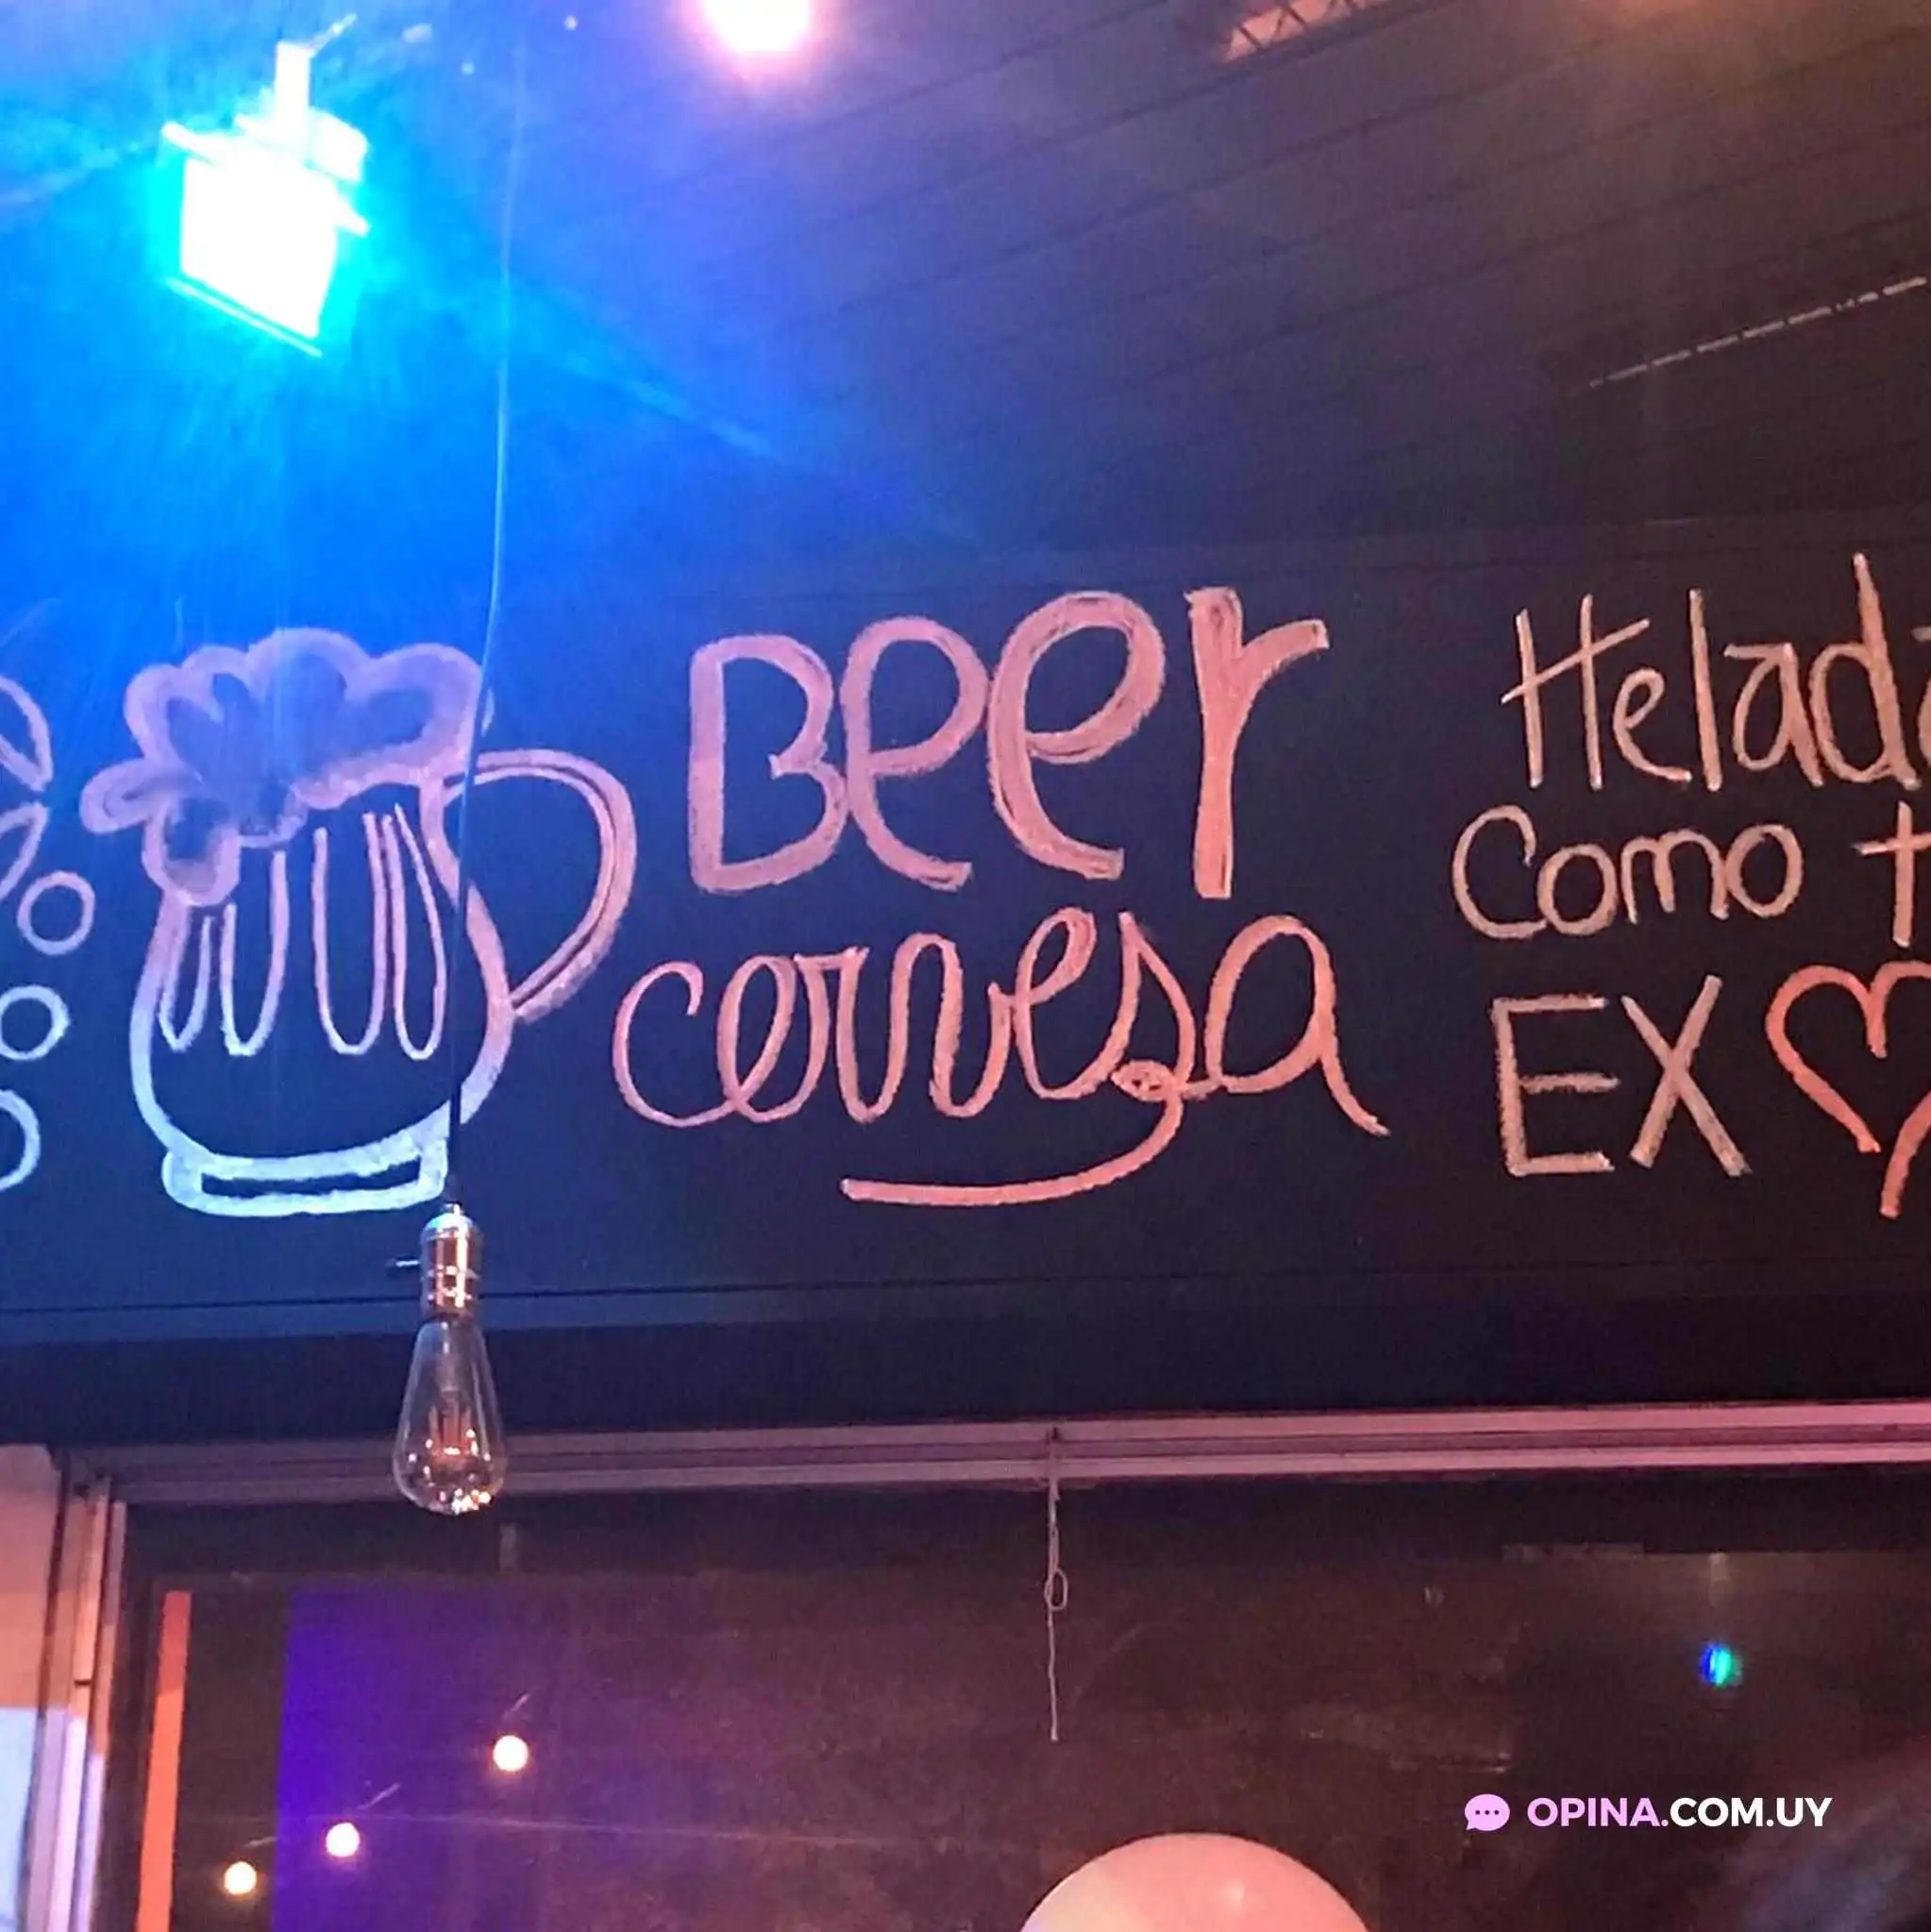 Beer
cervesa
Helad
Como t
EX
OPINA.COM.UY